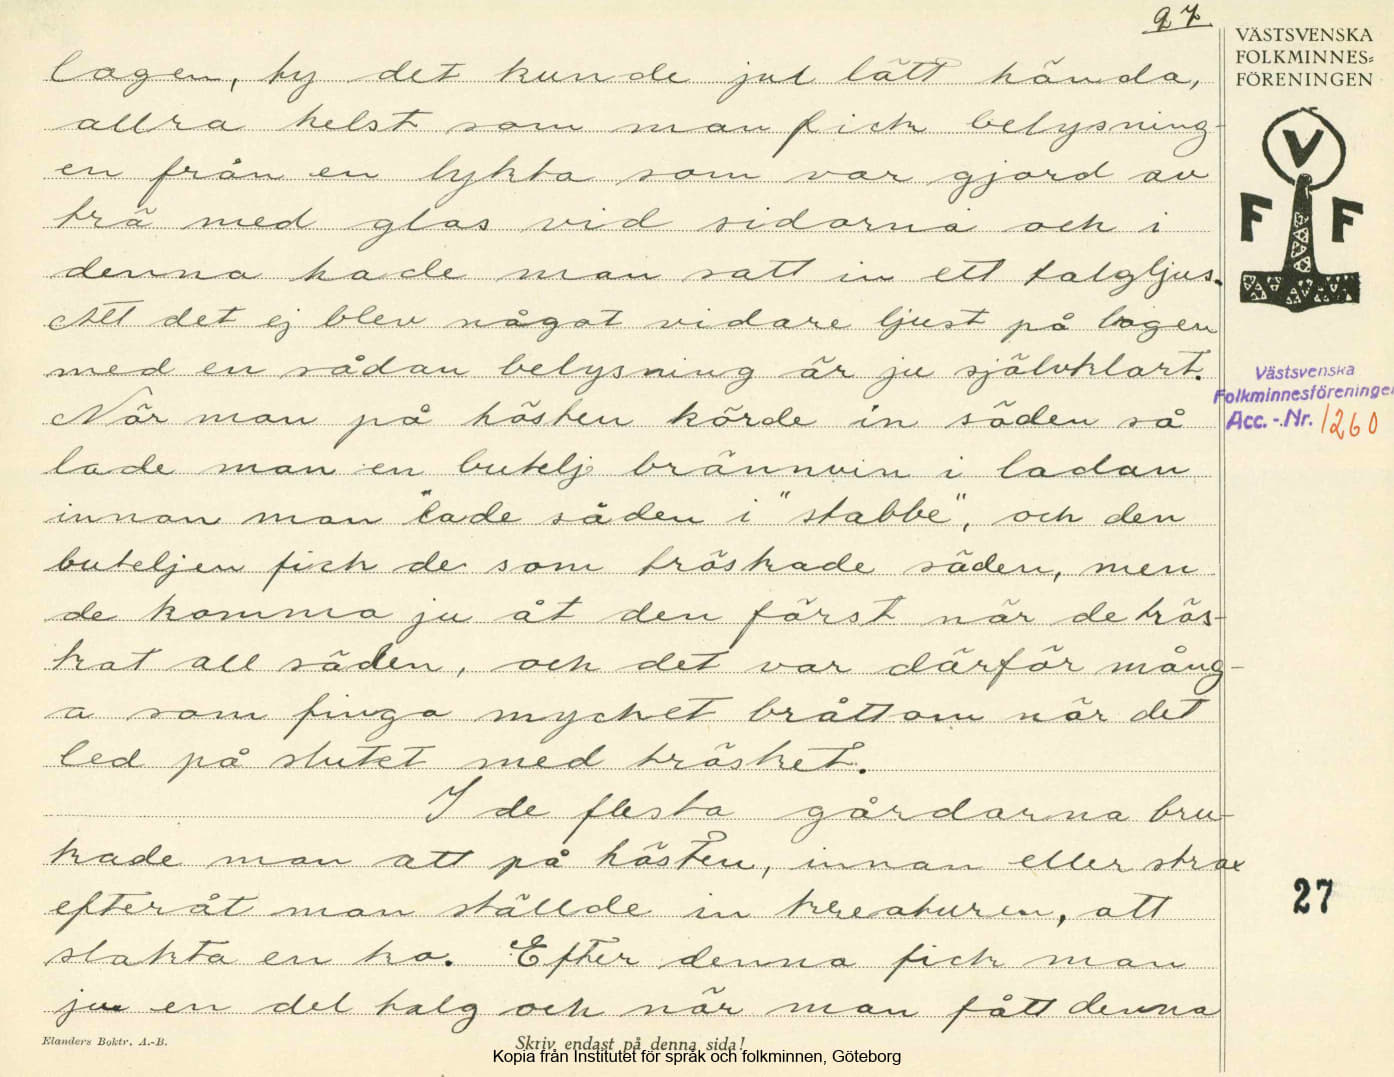 97
VÄSTSVENSKA
FOLKMINNES=
FÖRENINGEN
V
F F
logen, ty det kunde jul lätt hända,
allra helst som man fick belysning-
en från en lykta som var gjord av
trä med glas vid sidorna och i
denna hade man satt in ett talgljus.
Att det ej blev något vidare ljust på logen
med en sådan belysning är ju självklart.
När man på hösten körde in säden så
lade man en butelj brännvin i ladan
innan man "lade säden i "stabbe", och den
buteljen fick de som tröskade säden, men
de komma ju åt den först när de trös-
kat all säden, och det var därför mång-
a som fingo mycket bråttom när det
led på slutet med trösket.
I de flesta gårdarna bru-
kade man att på hösten, innan eller strax
efteråt man ställde in kreaturen, att
slakta en ko. Efter denna fick man
ju en del talg och när man fått denna
Västsvenska
Folkminnesföreningen
Acc. - Nr. 1260
27
Elanders Boktr. A.-B.
Skriv endast på denna sida!
Kopia från Institutet för språk och folkminnen, Göteborg